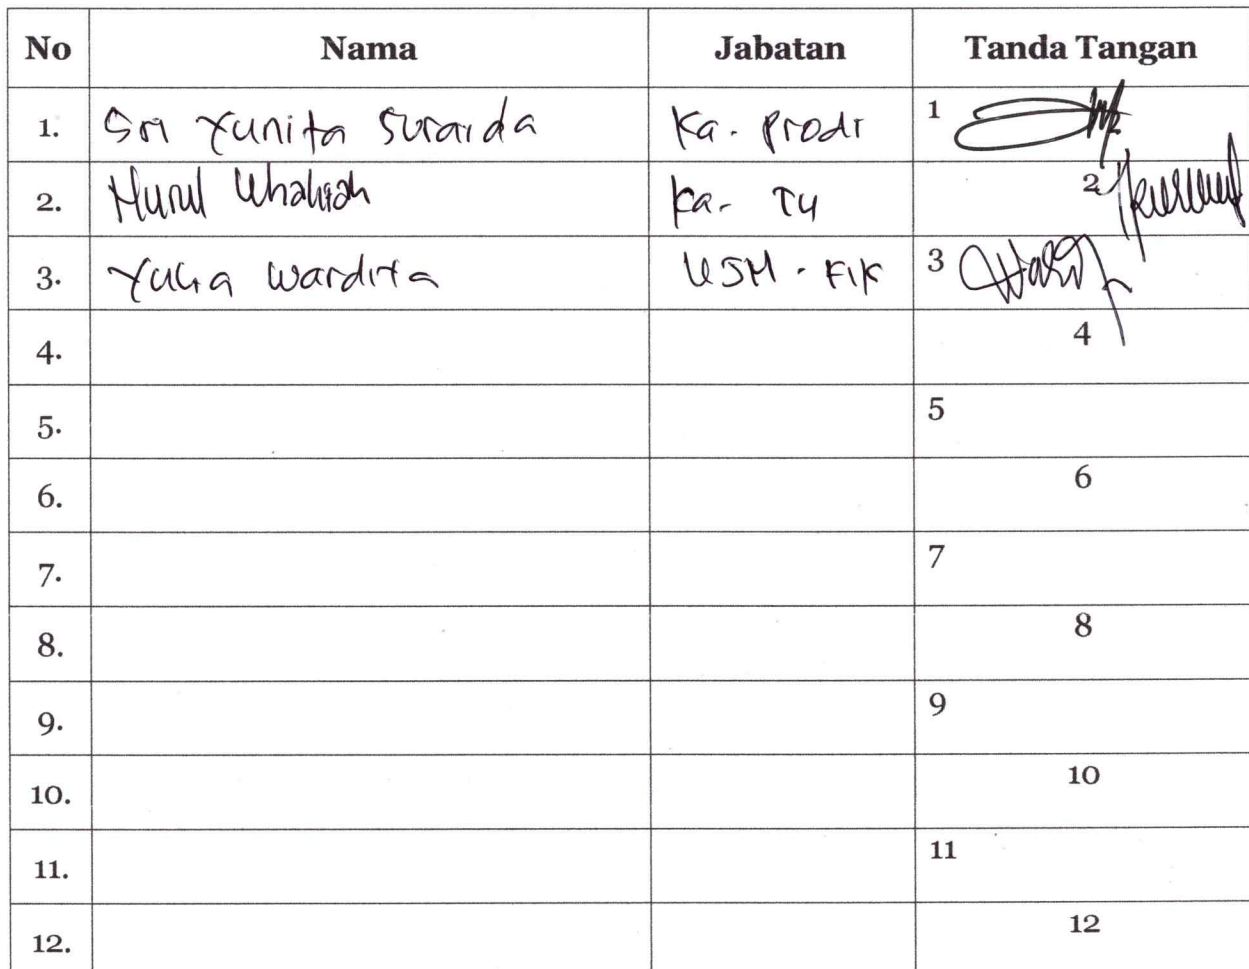 No Nama Jabatan Tanda Tangan
1. Sri Yunita Suraida Ka. Prodi 1
2. Nurul Ka. TU 2
3. Yulia Wardita USM - FIK 3
4. 4
5. 5
6. 6
7. 7
8. 8
9. 9
10. 10
11. 11
12. 12